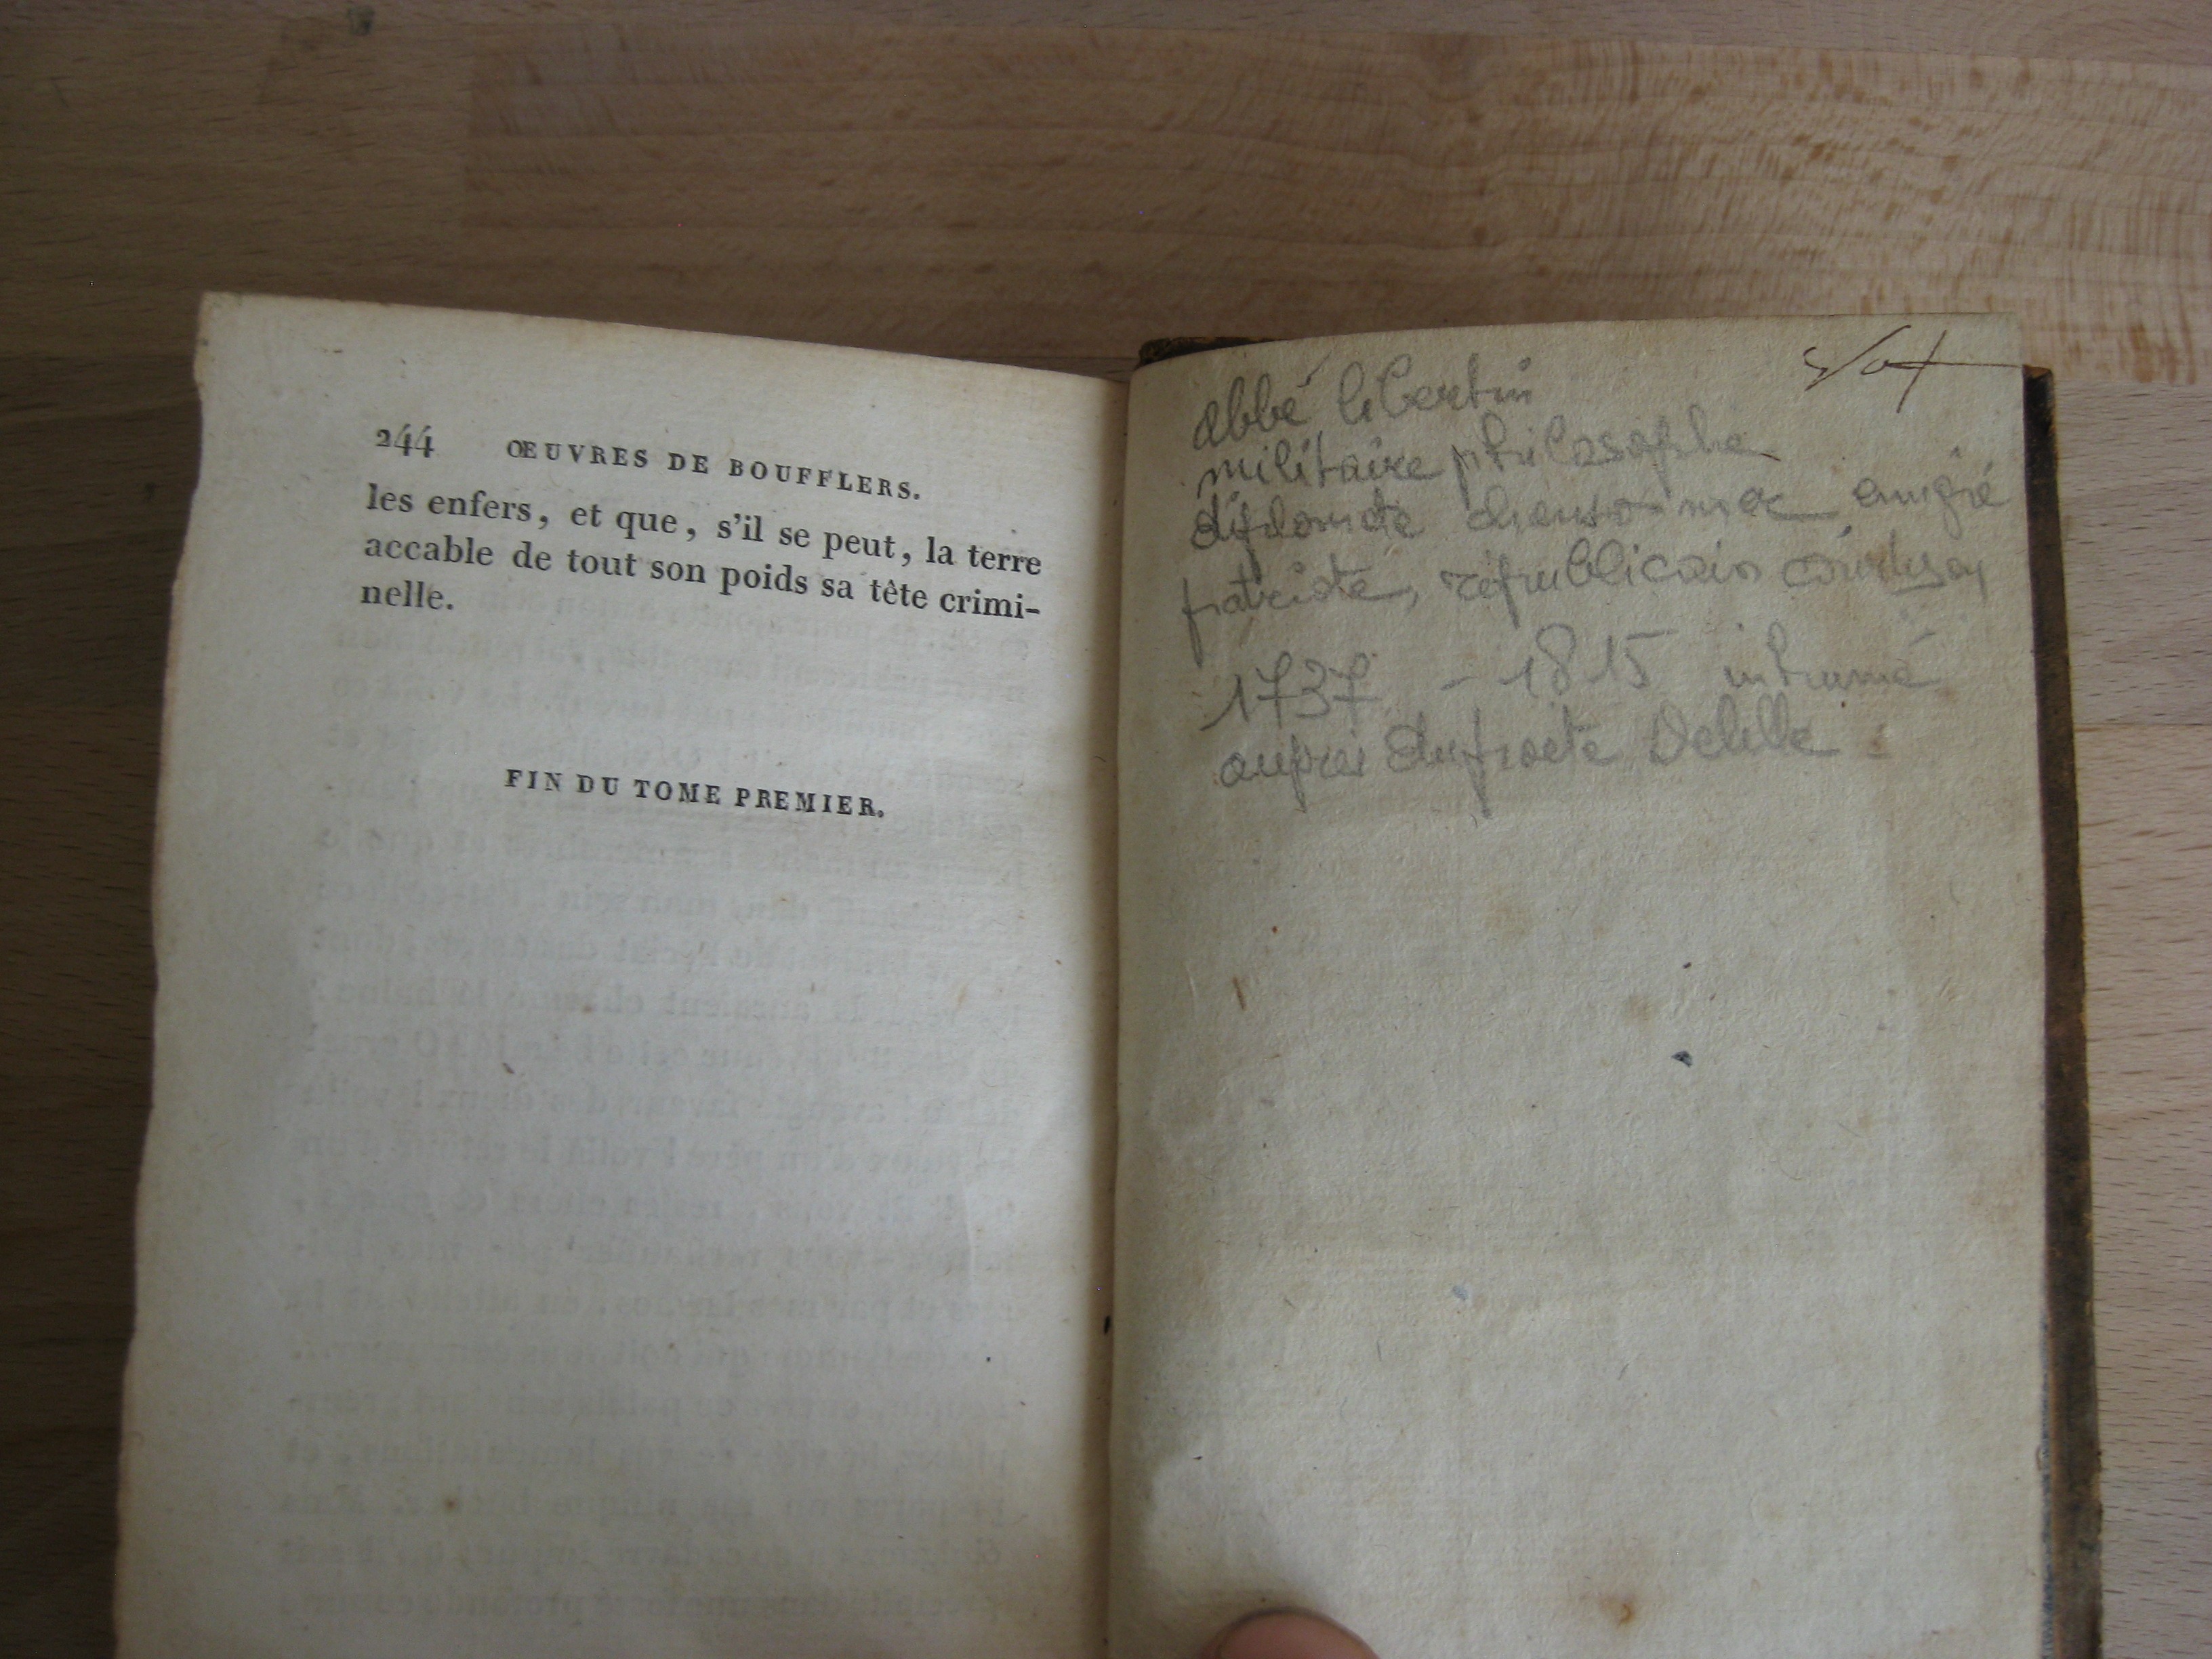 244 ŒUVRES DE BOUFFLERS.
les enfers, et que, s'il se peut, la terre
accable de tout son poids sa tête crimi-
nelle.
FIN DU TOME PREMIER.
abbé libertin
militaire philosophe
diplomate chansonnier émigré
patriote, républicain courtisan
1737 - 1815 inhumé
auprès du poete Delille